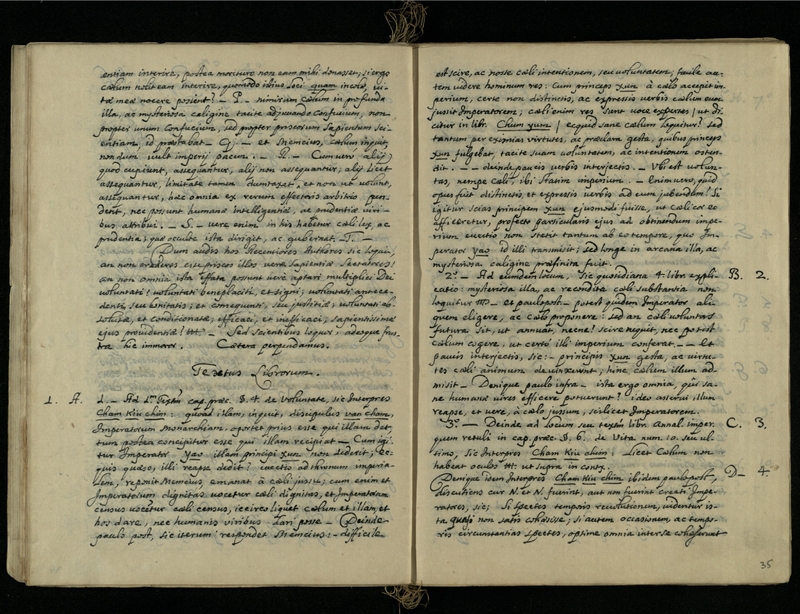 entiam interire, postea mortuere non eam mihi donasset; si ergo
cælum nolit eam interire, quomodo istius loci quam incolæ, vi-
tæ meæ nocere possent? — P. — nimirum cælum in profunda
illa, ac mysteriosa caligine tacite adjuvando Confusium, non
propter unum Confucium, sed propter priscorum Sapientum Sci-
entiam, id præstabat. Q. — et Memcius, cælum inquit,
nondum vult imperij pacem. — R. — Cum vero alij
quod cupiunt, assequantur, alij non assequantur, alij licet
assequantur, limitate tamen dumtaxat, et non ut volunt,
assequantur, hæc omnia ex rerum effectricis arbitrio pen-
dent, nec possunt humanæ intelligentiæ, ac prudentiæ viri-
bus attribui. — S. — vere enim in his habetur cæli lex, ac
prudentia; quæ occulte ista dirigit, ac gubernat. T. —
Dum audis hos Recentiores Authores sic loqui,
an non crederes eos priscos illos veræ Sapientiæ Sectatores?
an non omnia ista effata possunt vere aptari multiplici Dei
voluntati? voluntati beneplaciti, et signi; voluntati antece-
denti, seu bonitatis; et consequenti, seu justitiæ; voluntati ab-
solutæ, et conditionatæ, efficaci, et inefficaci, sapientissimæ
ejus providentiæ? &c. — Sed scientibus loquor, adeoque frus-
tra hic immoror. Cætera perpendamus.
Textus Librorum.
1. A. 1. — Ad 1.m Textum cap. præc. §. 4. de Voluntate, sic Interpres
Cham Kiu chim: quoad illam, inquit, discipulus van cham,
Imperatorum Monarchiam, oportet prius esse qui illam det,
tum postea concipitur esse qui illam recipiat — Cum igi-
tur Imperator Yao illam principi Xun non dederit, Ec-
quis quæso, illi reapse dedit? evectio ad thronum imperia-
lem, reponit Memcius, emanat à cæli jussu; cum enim et
Imperatorum dignitas vocetur cæli dignitas, et Imperatorum
census vocetur cæli census, sic eis liquet cælum et illam, et
hos dare, nec humanis viribus dari posse — Deinde
paulo post, sic iterum respondet Memcius: — difficile
est scire, ac nosse cæli intentionem, seu voluntatem, facile au-
tem videre hominum res: Cum princeps Xun à cælo accepit im-
perium, certe non distinctis, ac expressis verbis cælum eum
jussit Imperatorem; cæli enim res sunt voce expertes / ut di-
citur in libr. Chum yum / ecquid sane cælum loquitur? Sed
tantum per eximias virtutes, ac præclara gesta, quibus princeps
Xun fulgebat, tacite suam voluntatem, ac intentionem osten-
dit. — — deinde paucis verbis interjectis. — Ubi est volun-
tas, nempe Cæli, ibi statim imperium. — Enimvero, quid
opus fuit distinctis, et expressis verbis ad eum jubendum? Si
igitur scias principem Xun ejusmodi fuisse, ut cælicos ef-
ficeretur, profecto particularis ejus ad obtinendum impe-
rium evectio non stetit tantum ab eo tempore, quo Im-
perator Yao id illi transmisit; sed longe in arcana illa, ac
mysteriosa caligine præfinita fuit.
2.° — Ad eumdem locum, Sic quotidiana 4 libr. expli- B. 2.
catio: mysteriosa illa, ac recondita cæli substantia non
loquitur &c. — et paulo post — potest quidem Imperator ali-
quem eligere, ac Cælo proponere: sed an cæli voluntas
futura sit, ut annuat, necne? scire nequit, nec potest
cælum cogere, ut certo illi imperium conferat — — Et
paucis interjectis, sic: — principis Xun gesta, ac virtu-
tes cæli animum devinxerunt, hinc Cælum illum ad-
misit — Denique paulo infra — ista ergo omnia, quî sa-
ne humanæ vires efficere potuerunt? ideo asserui illum
reapse, et vere, à cælo jussum, scilicet Imperatorem.
3.° — Deinde ad locum seu textum libr. Annal. imper. C. 3.
quem retuli in cap. præc. §. 6. de Vita num. 10. seu ul-
timo, sic Interpres Cham Kiu chim: Licet Cælum non
habeat oculos &c: ut supra in contx.
Denique idem Interpres Cham Kiu chim ibidem paulo post, D— 4.
discutiens cur N. et N. fuerint, aut non fuerint creati Impe-
ratores, sic: Si spectes temporis revolutionem, videntur is-
ta quasi non satis cohæsisse; si autem occasionem, ac tempo-
ris circumstantias spectes, optime omnia inter se cohæserunt
35